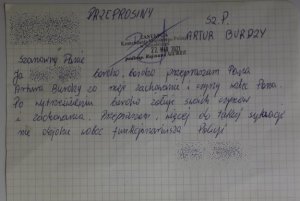 PRZEPROSINY
SZ. P.
ARTUR BURDZY
22 MAJ 2021
Szanowny Panie
Ja bardzo, bardzo przepraszam Pana
Artura Burdzy za moje zachowanie i czyny wobec Pana.
Po wytrzeźwieniu bardzo żałuję swoich czynów
i zachowania. Przepraszam, więcej do takiej sytuacji
nie dojdzie wobec funkcjonariusza Policji